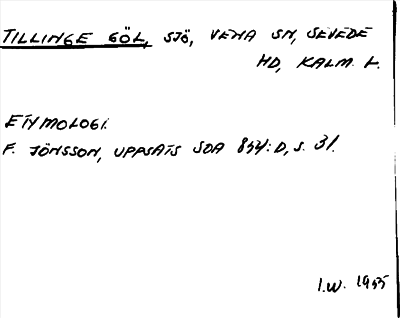 TILLINGE GÖL, SJÖ, VENA SN, SEVEDE
HD, KALM. L.
ETYMOLOGI.
F. JÖNSSON, UPPSATS SOA 854:D, S. 31.
I.W. 1955